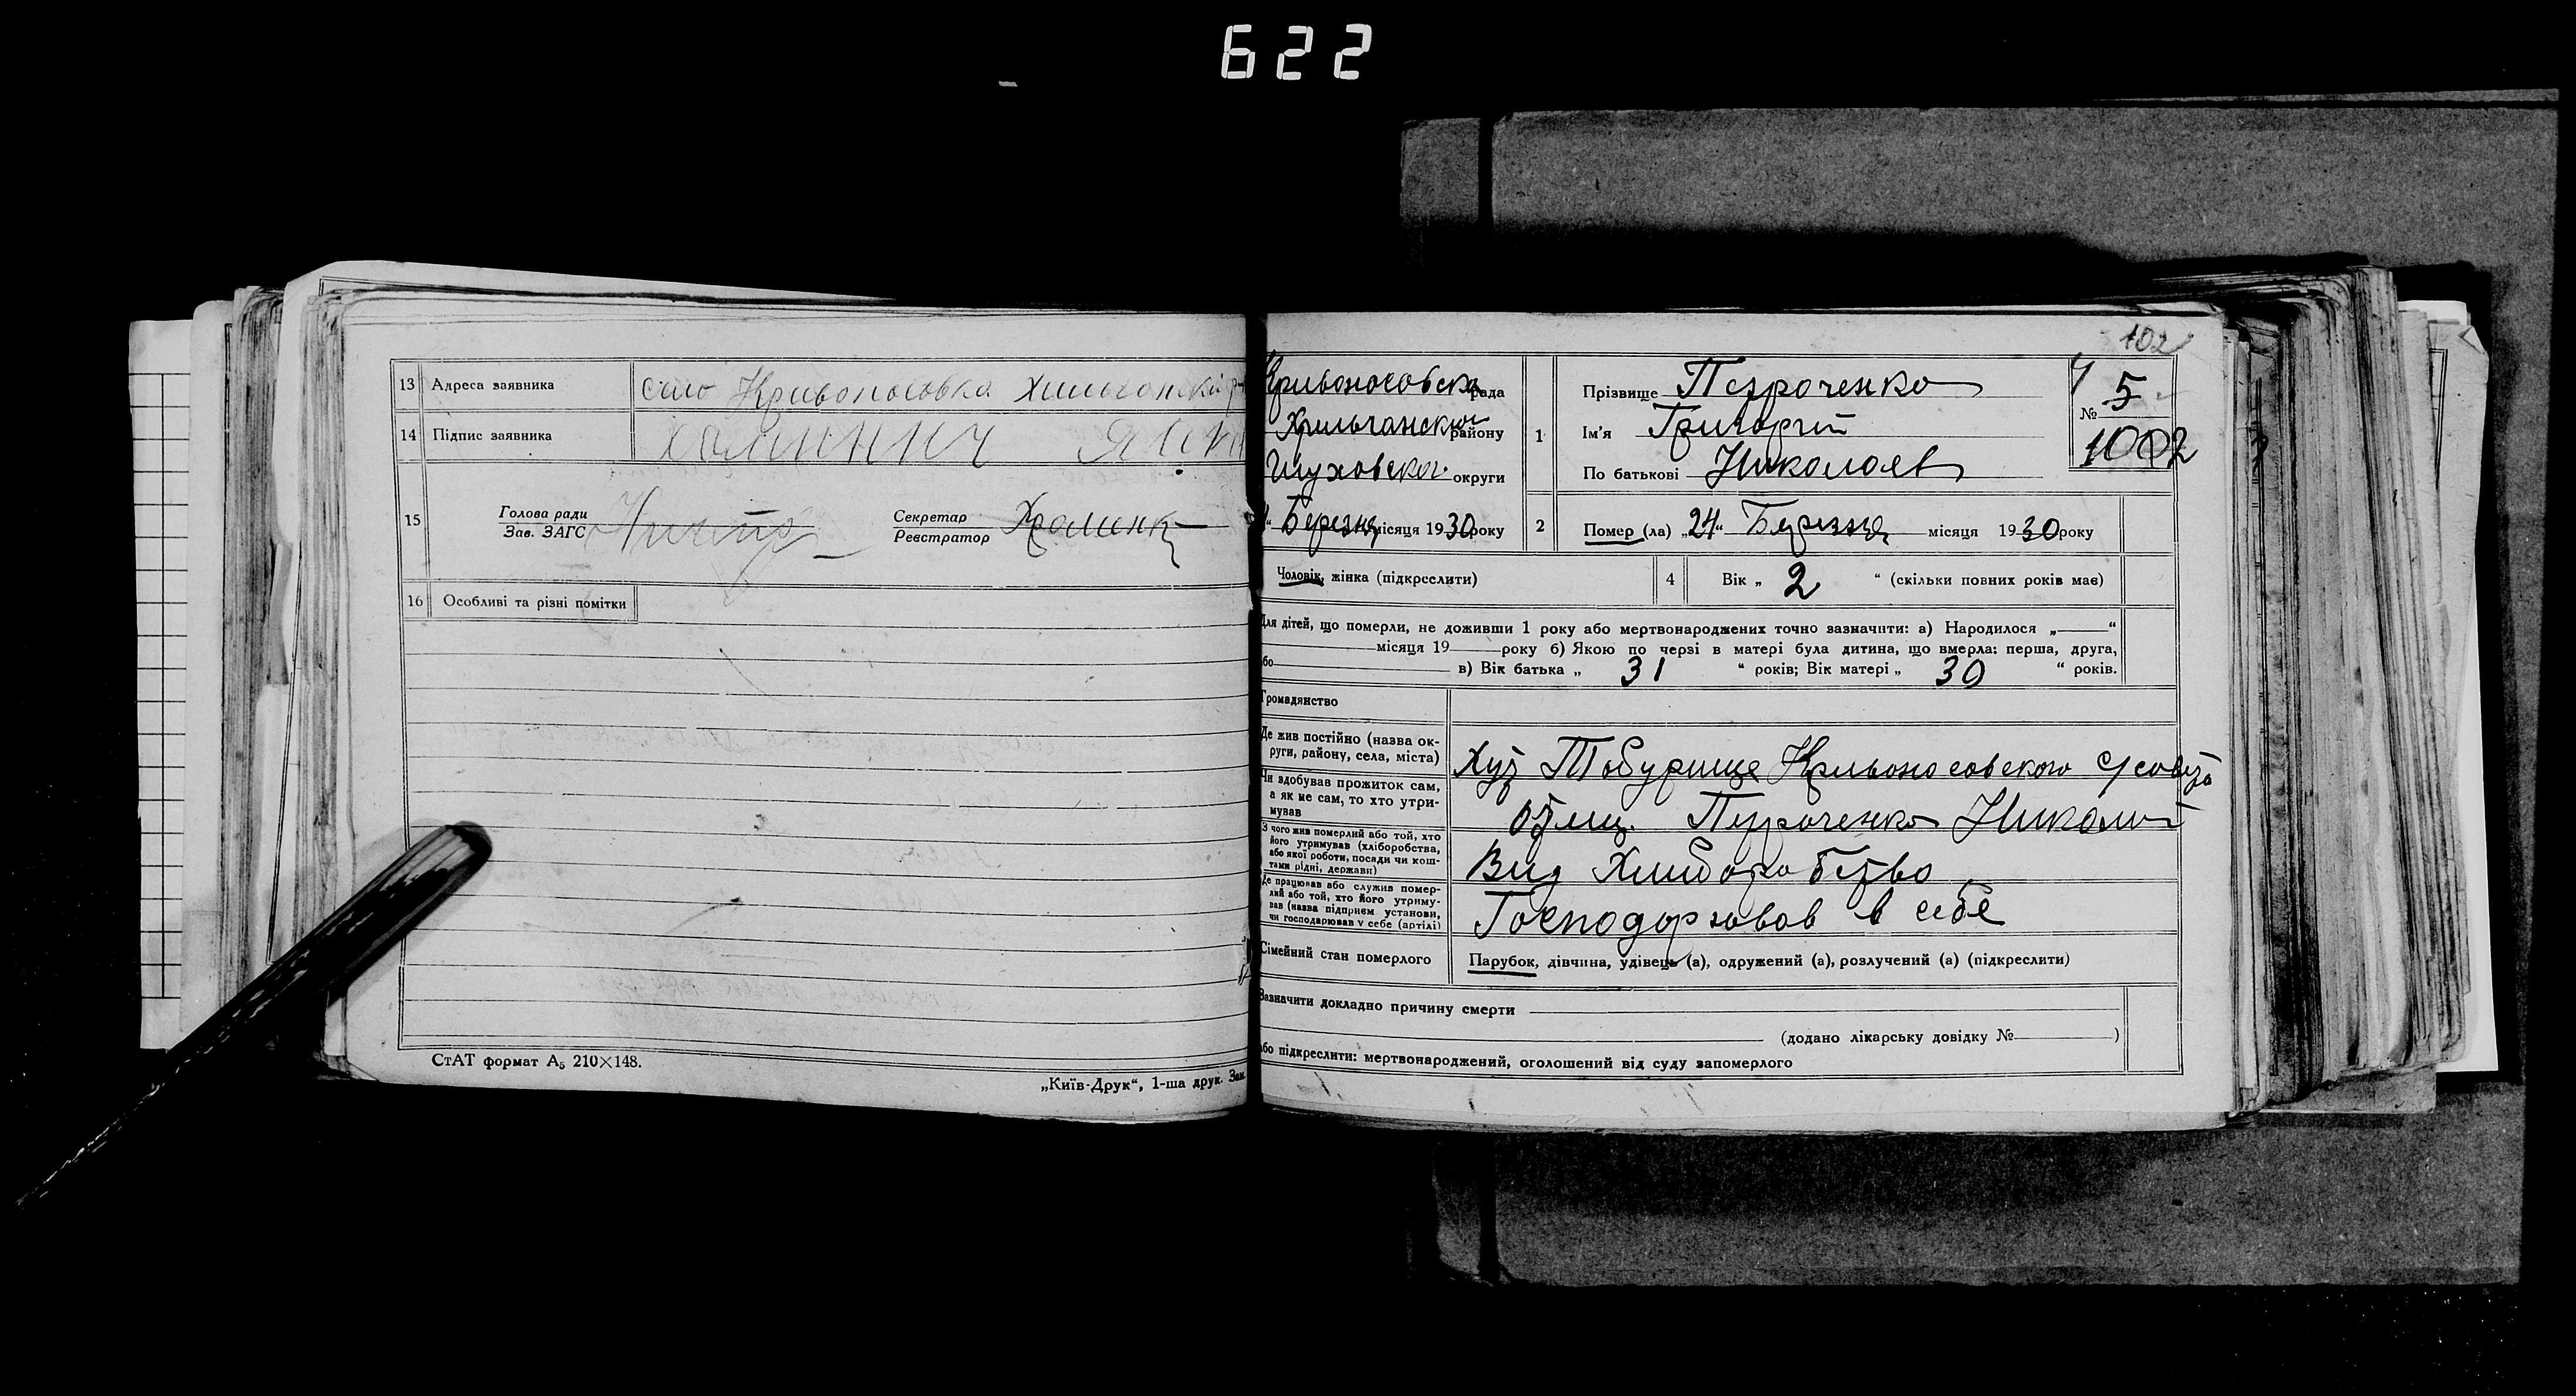 622
13 Адреса заявника село Кривоносовка Хильчанский р
14 Підпис заявника
15
Голова ради
Зав. ЗАГС
Секретар
Реєстратор
Хроменк
16 Особливі та різні помітки
СтАТ формат А5 210×148.
„Київ-Друк“, 1-ша друк. Зам.
102
Кривоносовска рада
Хильчанског району
Глуховског округи
“ Березня місяця 1930 року
1
Прізвище Петроченко
Ім’я Григорий
По батькові Николаев
№ 5
1002
2 Помер (ла) „24“ Березня місяця 1930 року
Чоловік, жінка (підкреслити)
4 Вік „ 2 “ (скільки повних років має)
Для дітей, що померли, не доживши 1 року або мертвонароджених точно зазначити: а) Народилося „ “
місяця 19 року б) Якою по черзі в матері була дитина, що вмерла: перша, друга,
або в) Вік батька „ 31 “ років; Вік матері „ 30 “ років.
Громадянство
Де жив постійно (назва ок-
руги, району, села, міста)
Хут Кривоносовского
Чи здобував прожиток сам,
а як не сам, то хто утри-
мував
отец. Петроченко Николай
З чого жив померлий або той, хто
його утримував (хліборобства,
або якої роботи, посади чи кош-
тами рідні, держави)
Вид Хлиборобство
Де працював або служив помер-
лий або той, хто його утриму-
вав (назва підприєм установи,
чи господарював у себе (артілі)
Господорювов в себе
Сімейний стан померлого
Парубок, дівчина, удівець (а), одружений (а), розлучений (а) (підкреслити)
Зазначити докладно причину смерти
(додано лікарську довідку № )
або підкреслити: мертвонароджений, оголошений від суду запомерлого